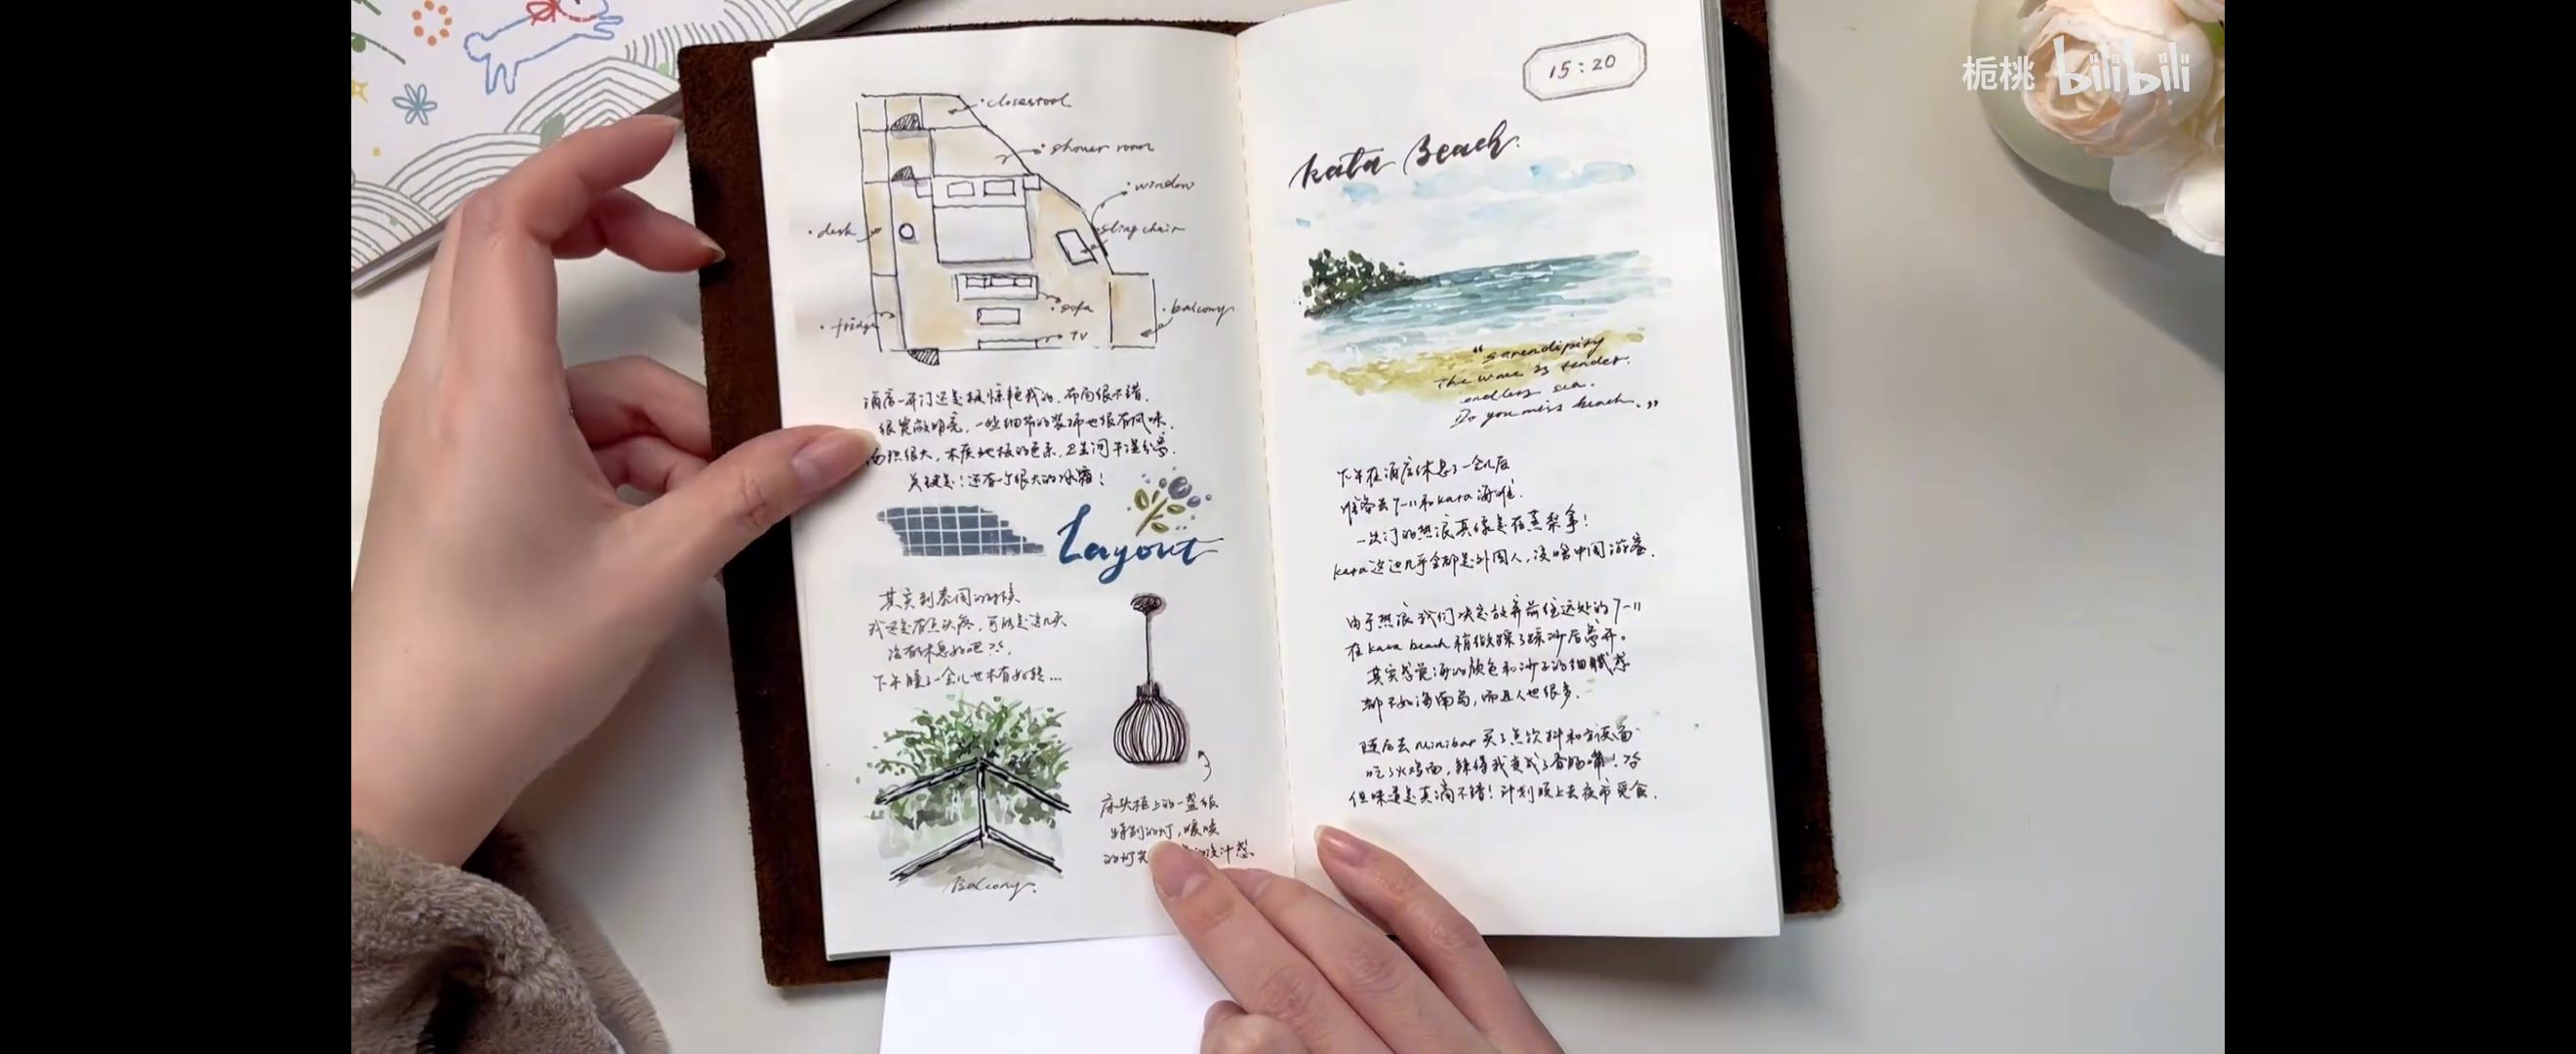 closestool
shower room
window
desk
sling chair
sofa
balcony
fridge
TV
酒店一开门还是挺惊艳我的，布局很不错，
很宽敞明亮，一些细节的装饰也很有风味，
面积很大，木质地板的色系，卫生间干湿分离，
关键是！还有个很大的冰箱！
Layout
其实到泰国的时候
我还是有点头疼，可能是这几天
没有休息好吧
下午睡了一会儿也未有好转...
Balcony.
床头柜上的一盏很
特别的灯，暖暖
的灯光 设计感
15:20
kata Beach.
"serendipity
the wave is tender.
endless sea.
Do you miss beach."
下午在酒店休息了一会儿后
准备去7-11和kata海滩.
一出门的热浪真像是在蒸桑拿！
kata这边几乎全都是外国人，没啥中国游客.
由于热浪我们决定放弃前往远处的7-11
在kata beach稍微踩了踩沙后离开。
其实感觉海的颜色和沙子的细腻感
都不如海南岛，而且人也很多.
随后去minibar买了点饮料和方便面
吃了火鸡面，辣得我变成了香肠嘴！
但味道是真滴不错！计划晚上去夜市觅食.
栀桃 bilibili